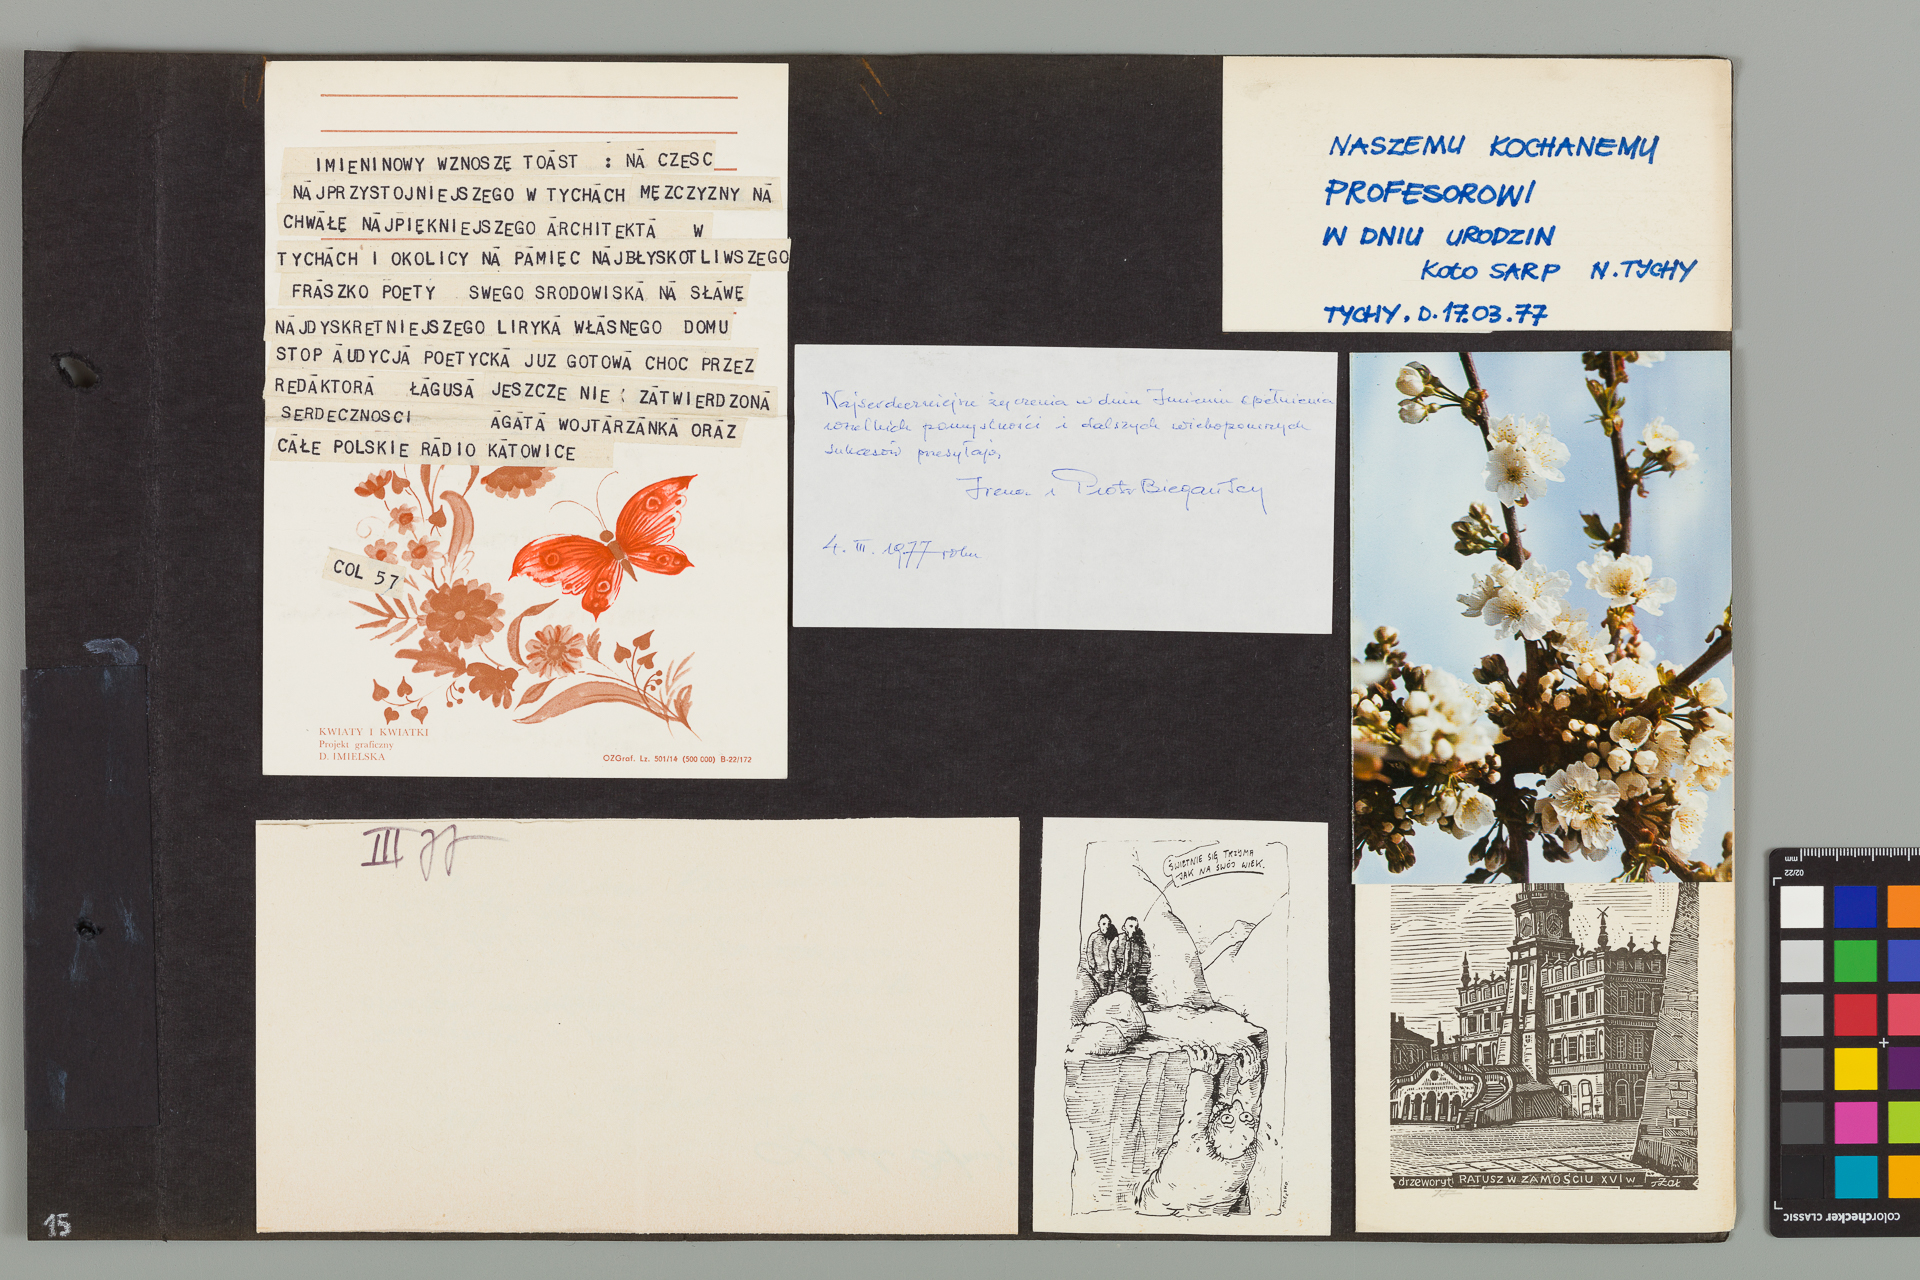 IMIENINOWY WZNOSZĘ TOAST : NA CZESC
NAJPRZYSTOJNIEJSZEGO W TYCHACH MĘZCZYZNY NA
CHWAŁĘ NAJPIĘKNIEJSZEGO ARCHITEKTA W
TYCHACH I OKOLICY NA PAMIĘC NAJBŁYSKOTLIWSZEGO
FRASZKO POETY SWEGO SRODOWISKA NA SŁAWĘ
NAJDYSKRETNIEJSZEGO LIRYKA WŁASNEGO DOMU
STOP AUDYCJA POETYCKA JUZ GOTOWA CHOC PRZEZ
REDAKTORA ŁAGUSA JESZCZE NIE ( ZATWIERDZONA
SERDECZNOSCI AGATA WOJTARZANKA ORAZ
CAŁE POLSKIE RADIO KATOWICE
COL 57
KWIATY I KWIATKI
Projekt graficzny
D. IMIELSKA
OZGraf. Lz. 501/14 (500 000) B-22/172
NASZEMU KOCHANEMU
PROFESOROWI
W DNIU URODZIN
KOŁO SARP N. TYCHY
TYCHY, D. 17.03.77
Najserdeczniejsze życzenia w dniu Imienin spełnienia
wszelkich pomyślności i dalszych wiekopomnych
sukcesów przesyłają,
Irena i Piotr Biegańscy
4. III. 1977 roku
III 77
ŚWIETNIE SIĘ TRZYMA
JAK NA SWÓJ WIEK.
drzeworyt RATUSZ W ZAMOŚCIU XVI w
15
mm
02/22
colorchecker CLASSIC